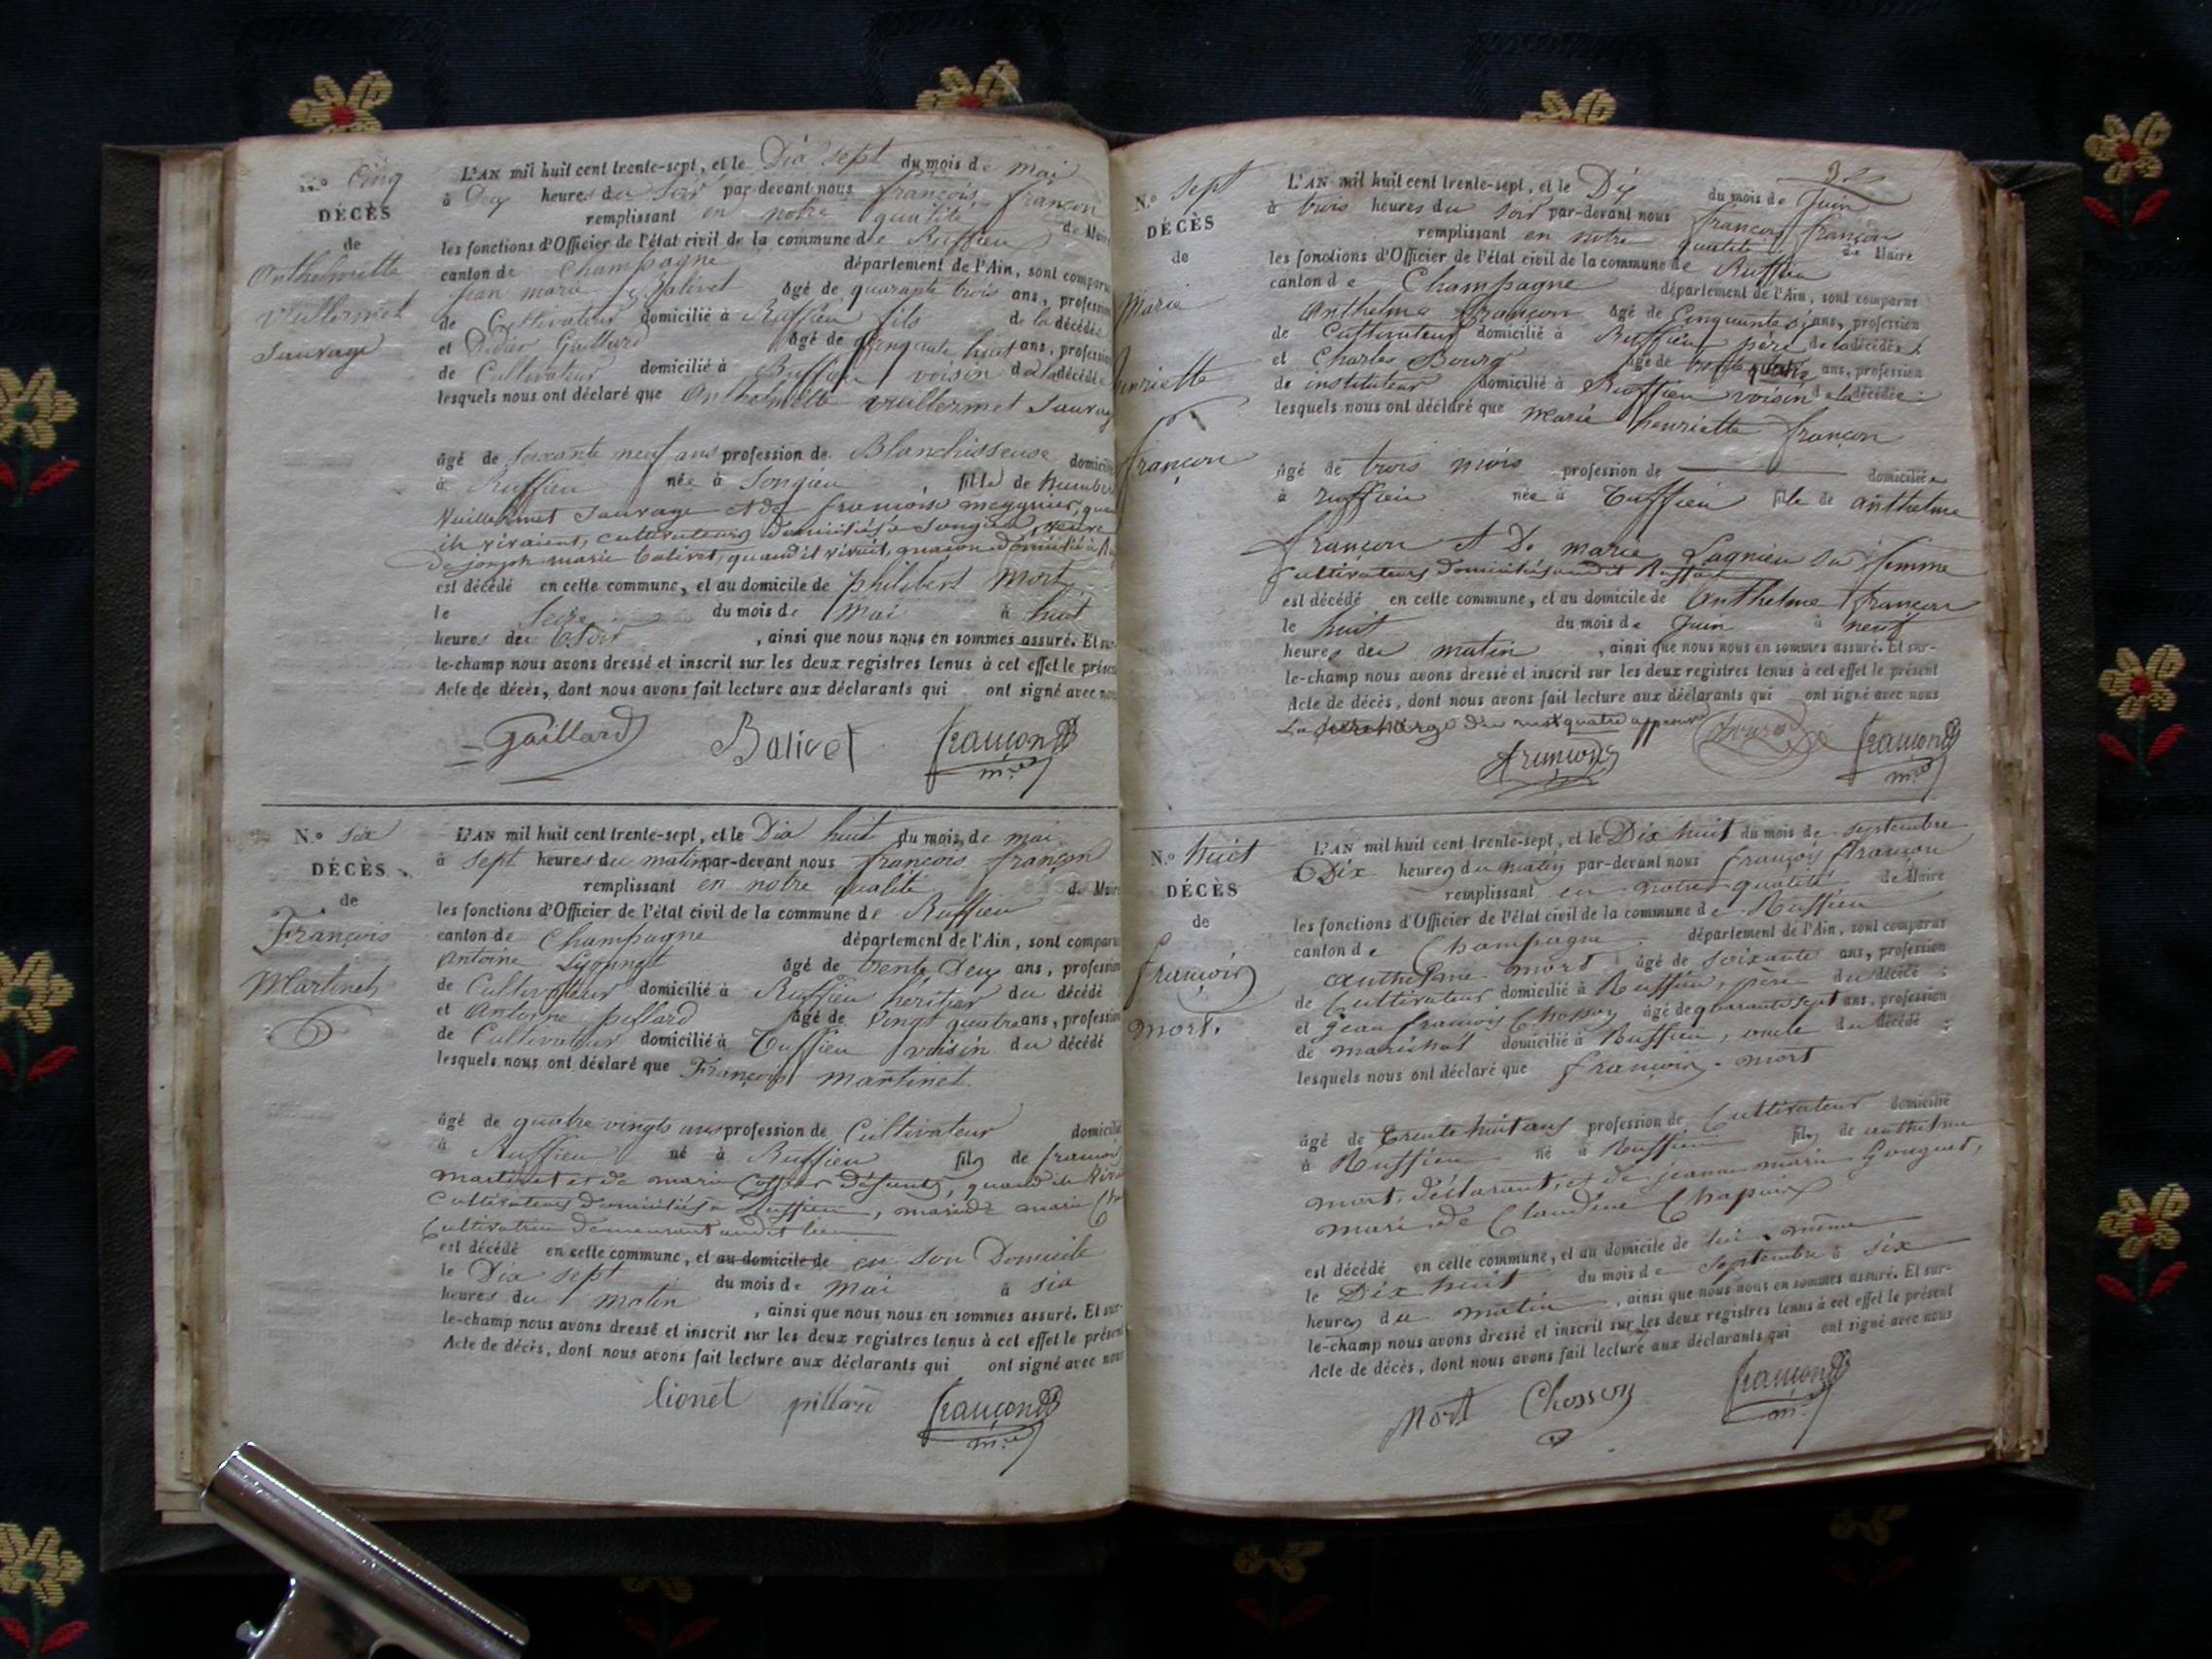 N.o Cinq
DÉCÈS
de
Anthelmette
Vullermet
Sauvage
L'AN mil huit cent trente-sept, et le Dix sept du mois de mai
à Deux heures du soir par-devant nous françois françon
remplissant en notre qualité de Maire
les fonctions d'Officier de l'état civil de la commune de Ruffieu
canton de Champagne département de l'Ain, sont comparus
Jean marie Balivet âgé de quarante trois ans, profession
de Cultivateur domicilié à Ruffieu fils de la décédée
et Didier Gaillard âgé de Cinquante huit ans, profession
de Cultivateur domicilié à Ruffieu voisin de la décédée
lesquels nous ont déclaré que Anthelmette vullermet Sauvage
âgé de soixante neuf ans profession de Blanchisseuse domicilié
à Ruffieu née à Songieu, fille de humber
Vuillermet Sauvage et de francoise meygnier, quand
ils vivaient, cultivateurs domiciliés à Songieu, veuve
de joseph marie balivet, quand il vivait, maçon domicilié à
est décédé en cette commune, et au domicile de philibert Mort
le Seize du mois de Mai à huit
heures du soir, ainsi que nous nous en sommes assuré. Et sur-
le-champ nous avons dressé et inscrit sur les deux registres tenus à cet effet le présent
Acte de décès, dont nous avons fait lecture aux déclarants qui ont signé avec nous
Gaillard Balivet françon m.re
N.o six
DÉCÈS
de
François
Martinet
L'AN mil huit cent trente-sept, et le Dix huit du mois de mai
à sept heures du matin par-devant nous françois françon
remplissant en notre qualité de Maire
les fonctions d'Officier de l'état civil de la commune de Ruffieu
canton de Champagne département de l'Ain, sont comparus
Antoine Lyonnet âgé de trente Deux ans, profession
de Cultivateur domicilié à Ruffieu héritier du décédé
et Antoine pillard âgé de Vingt quatre ans, profession
de Cultivateur domicilié à Ruffieu voisin du décédé
lesquels nous ont déclaré que François martinet
âgé de quatre vingts ans profession de Cultivateur domicilié
à Ruffieu né à Ruffieu fils de francois
martinet et de marie défunts, quand ils
Cultivateurs domiciliés à Ruffieu, mari de marie
Cultivatrice demeurant audit lieu
est décédé en cette commune, et au domicile de en son Domicile
le Dix sept du mois de mai à six
heures du matin, ainsi que nous nous en sommes assuré. Et sur-
le-champ nous avons dressé et inscrit sur les deux registres tenus à cet effet le présent
Acte de décès, dont nous avons fait lecture aux déclarants qui ont signé avec nous
lionet pillard françon m.re
N.o sept
DÉCÈS
de
Marie
henriette
françon
L'AN mil huit cent trente-sept, et le Dix du mois de Juin
à trois heures du soir par-devant nous françois françon
remplissant en notre qualité de Maire
les fonctions d'Officier de l'état civil de la commune de Ruffieu
canton de Champagne département de l'Ain, sont comparus
Anthelme françon âgé de Cinquante six ans, profession
de Cultivateur domicilié à Ruffieu père de la décédée
et Charles Bourg âgé de trente quatre ans, profession
de instituteur domicilié à Ruffieu voisin de la décédée
lesquels nous ont déclaré que Marie henriette françon
âgé de trois mois profession de domiciliée
à ruffieu née à Ruffieu fille de anthelme
françon et De marie Lagnieu sa femme
Cultivateurs domiciliés audit Ruffieu
est décédé en cette commune, et au domicile de Anthelme françon
le huit du mois de Juin à neuf
heures du matin, ainsi que nous nous en sommes assuré. Et sur-
le-champ nous avons dressé et inscrit sur les deux registres tenus à cet effet le présent
Acte de décès, dont nous avons fait lecture aux déclarants qui ont signé avec nous
La surcharge du mot quatre approuvé
françon Bourg françon m.re
N.o huit
DÉCÈS
de
françois
mort.
L'AN mil huit cent trente-sept, et le Dix huit du mois de septembre
à Dix heures du matin par-devant nous françois françon
remplissant en notre qualité de Maire
les fonctions d'Officier de l'état civil de la commune de Ruffieu
canton de Champagne département de l'Ain, sont comparus
anthelme mort âgé de soixante ans, profession
de Cultivateur domicilié à Ruffieu, père du décédé ;
et jean francois Chosson âgé de quarante sept ans, profession
de maréchal domicilié à Ruffieu, oncle du décédé ;
lesquels nous ont déclaré que françois mort
âgé de trente huit ans profession de Cultivateur domicilié
à Ruffieu né à Ruffieu fils de anthelme
mort, déclarant, et de jeanne marie Gouguet,
mari de Claudine Chapuix
est décédé en cette commune, et au domicile de lui-même
le Dix huit du mois de septembre à six
heures du matin, ainsi que nous nous en sommes assuré. Et sur-
le-champ nous avons dressé et inscrit sur les deux registres tenus à cet effet le présent
Acte de décès, dont nous avons fait lecture aux déclarants qui ont signé avec nous
Mort Chosson françon m.re